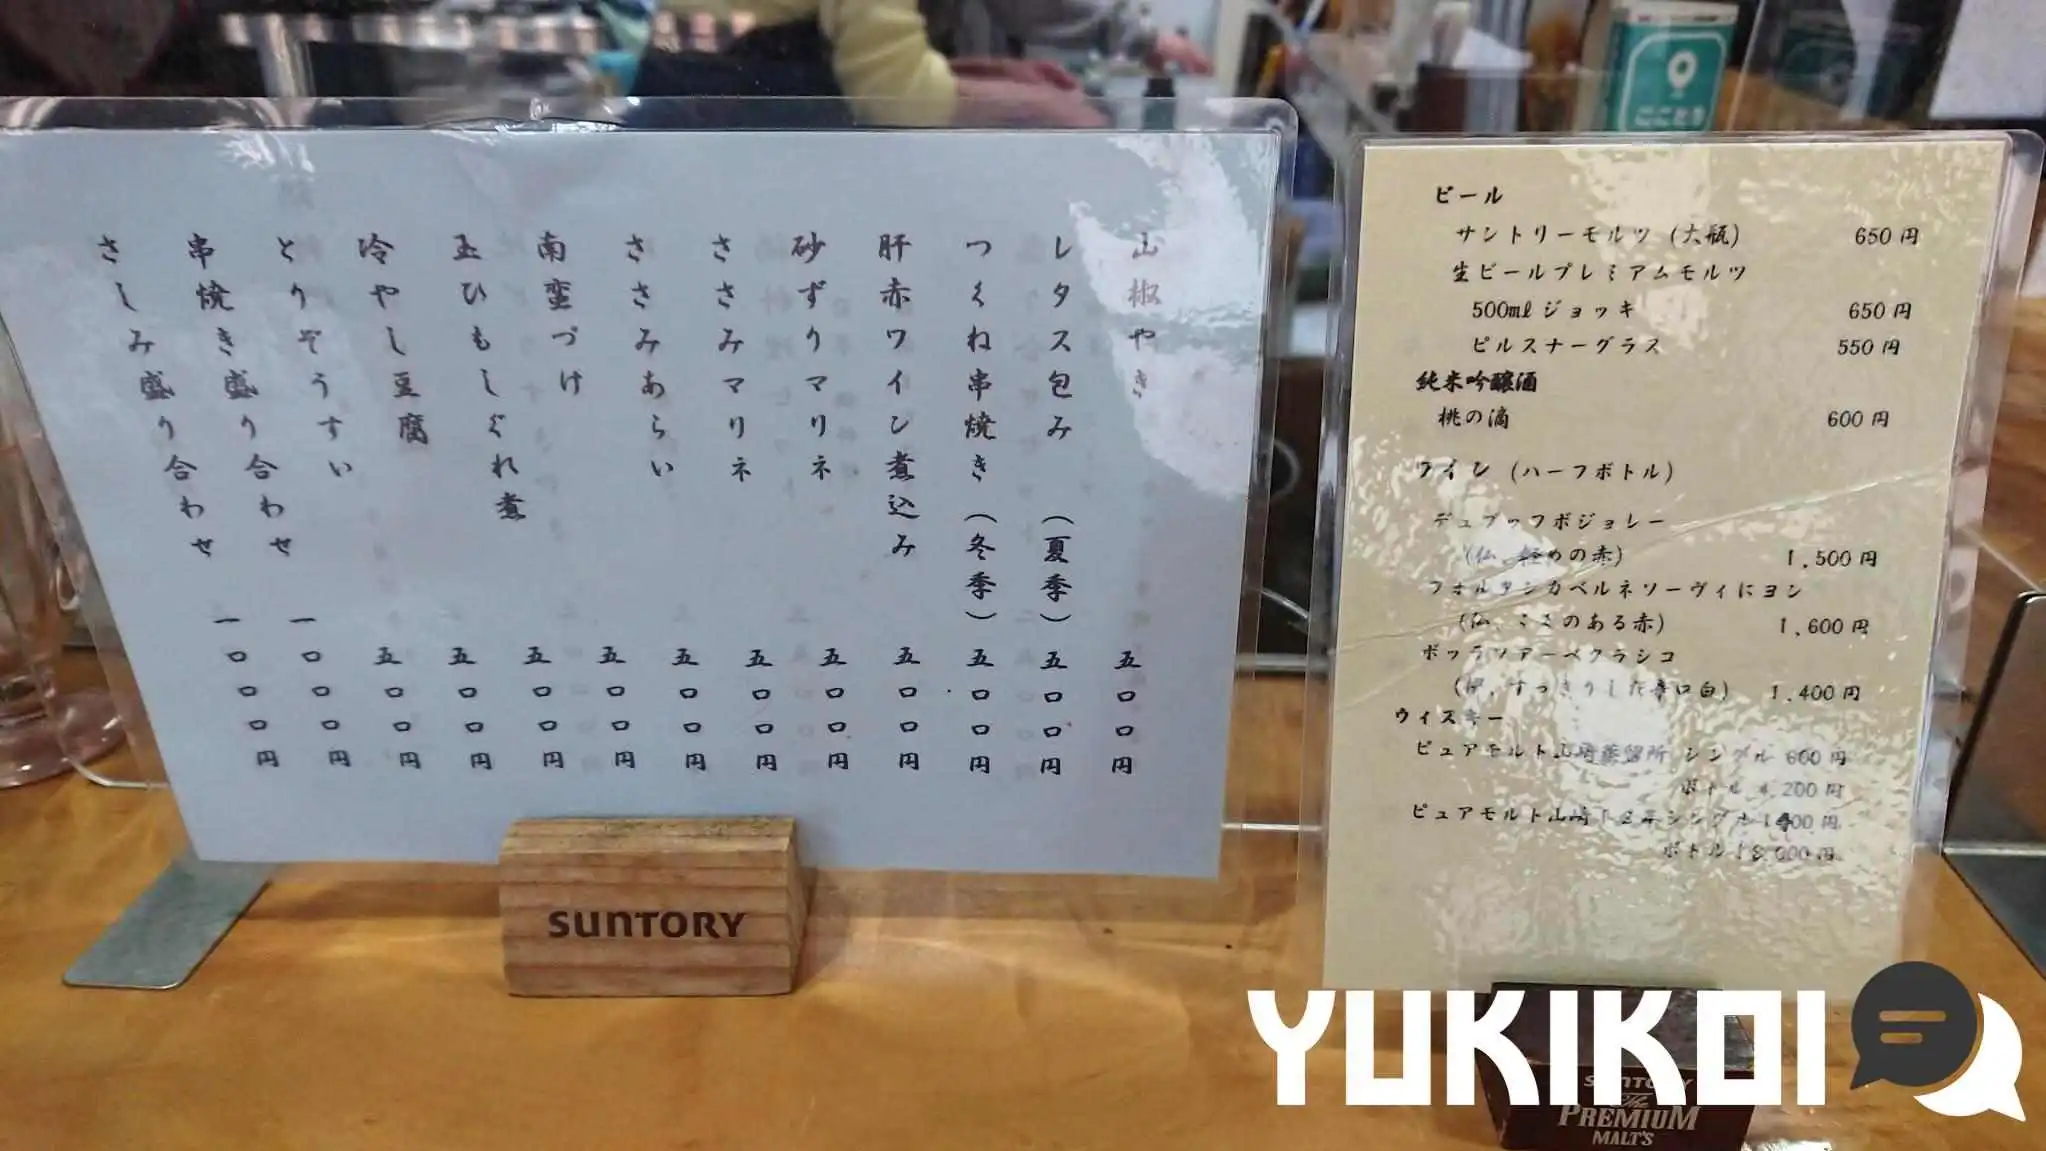 こことも
山椒やき 五〇〇円
レタス包み(夏季) 五〇〇円
つくね串焼き(冬季) 五〇〇円
肝赤ワイン煮込み 五〇〇円
砂ずりマリネ 五〇〇円
ささみマリネ 五〇〇円
ささみあらい 五〇〇円
南蛮づけ 五〇〇円
玉ひもしぐれ煮 五〇〇円
冷やし豆腐 五〇〇円
とりぞうすい 五〇〇円
串焼き盛り合わせ 一〇〇〇円
さしみ盛り合わせ 一〇〇〇円
SUNTORY
ビール
サントリーモルツ (大瓶) 650円
生ビールプレミアムモルツ
500mℓ ジョッキ 650円
ピルスナーグラス 550円
純米吟醸酒
桃の滴 600円
ワイン (ハーフボトル)
デュブッフボジョレー
(仏、軽めの赤) 1,500円
フォルタンカベルネソーヴィにヨン
(仏、こくのある赤) 1,600円
ボッラソアーベクラシコ
(伊、すっきりした辛口白) 1,400円
ウィスキー
ピュアモルト山崎蒸留所 シングル 600円
ボトル 4,200円
ピュアモルト山崎12年シングル
ボトル
YUKIKOI
SUNTORY
The
PREMIUM
MALT'S